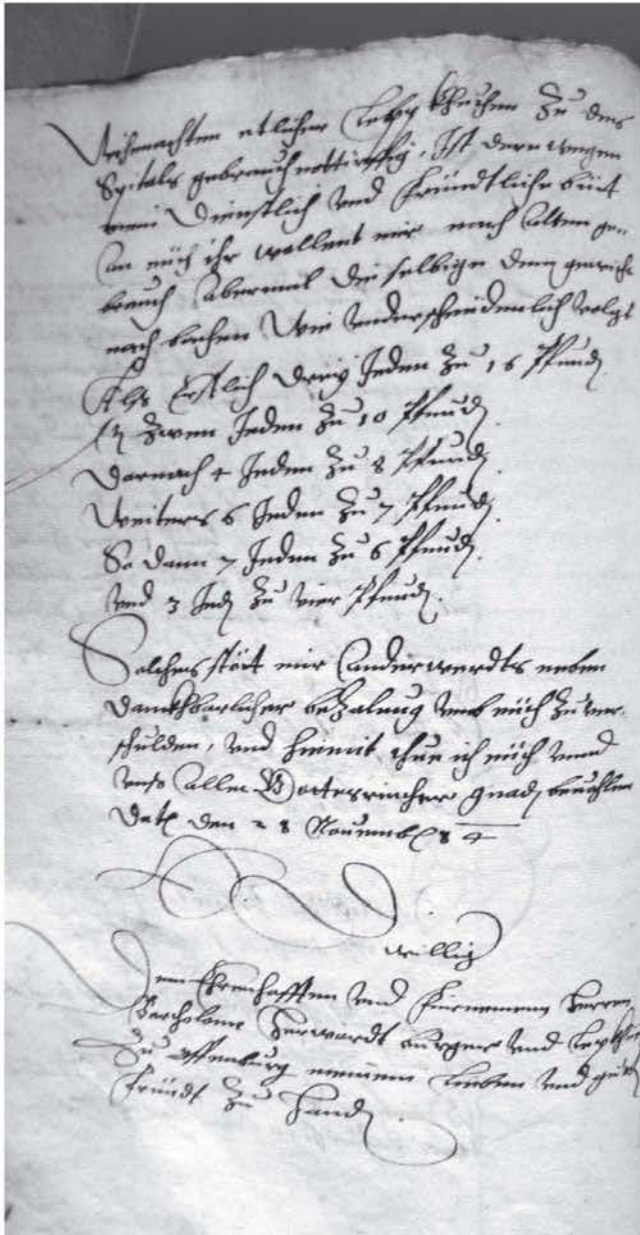 Weihenachten etlicher Lebkhuchen zu des
Spitals gebrauch nottürfftig, Ist derwegen
mein dienstlich vnd freündtliche bitt
an euch ihr wellent mir nach altem ge„
brauch abermal dieselbige dem gewicht
nach bachen Wie vnderscheidenlich volgt
Als Erstlich drey Jeden zu 16 Pfundt
zwen Jeden zu 10 Pfundt
Darnach 4 Jeden zu 8 Pfundt
Weiters 6 Jeden zu 7 Pfundt
So dann 7 Jeden zu 6 Pfundt
vnd 3 Jed zu vier Pfundt.
Solches stet mir anderwerdts neben
danckhbarlicher bezalung vmb euch zu ver„
schulden, vnd hiemit thue ich euch vnnd
vnß alle Gottes gnad beuehlen
Dat den 28 Nouemb 84
williger
Dem Ehrenhafften vnd fürnemen herren
Bartholome burger vnd
zu Offenburg meinem lieben vnd guten
freündt zu handen